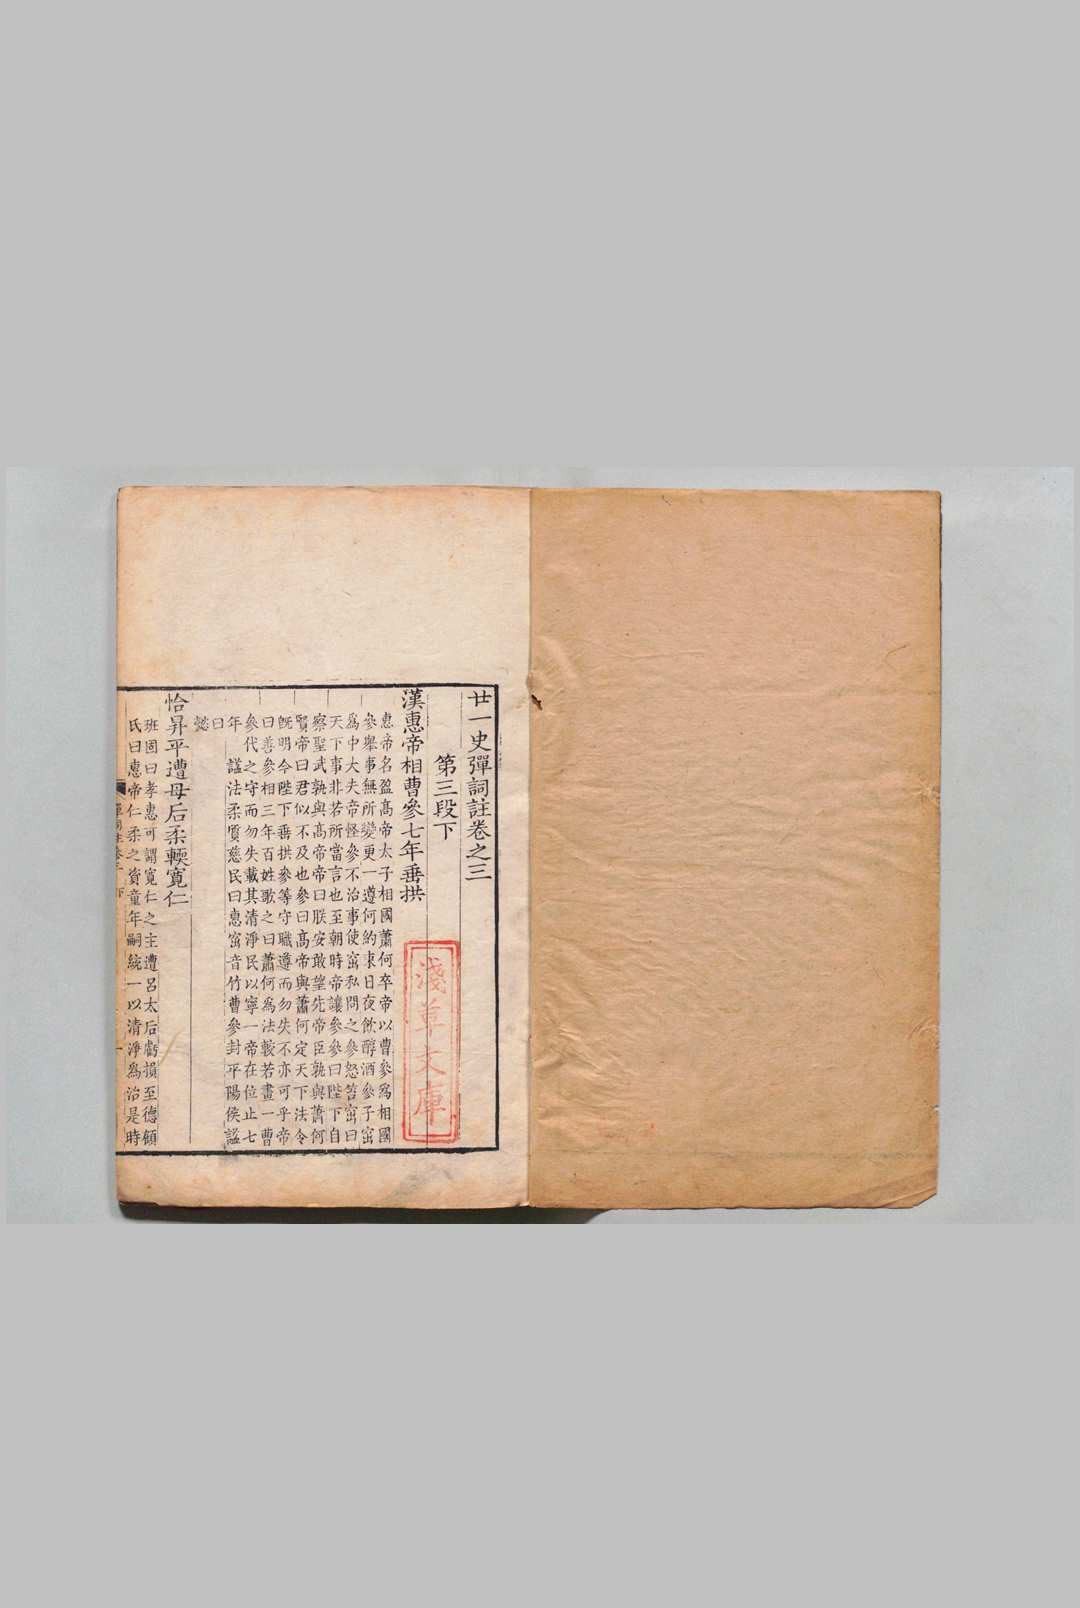 廿一史彈詞註卷之三
第三段下
漢惠帝相曹參七年垂拱
惠帝名盈高帝太子相國蕭何卒帝以曹參爲相國
參舉事無所變更一遵何約束日夜飲醇酒參子窋
爲中大夫帝怪參不治事使窋私問之參怒笞窋曰
天下事非若所當言也至朝時帝讓參參曰陛下自
察聖武孰與高帝帝曰朕安敢望先帝臣孰與蕭何
賢帝曰君似不及也參曰高帝與蕭何定天下法令
旣明今陛下垂拱參等守職遵而勿失不亦可乎帝
曰善參相三年百姓歌之曰蕭何爲法較若畫一曹
參代之守而勿失載其清淨民以寧一帝在位止七
年 諡法柔質慈民曰惠窋音竹曹參封平陽侯諡
曰
懿
恰昇平遭母后柔輭寬仁
班固曰孝惠可謂寬仁之主遭呂太后虧損至德顧
氏曰惠帝仁柔之資童年嗣統一以清淨爲治是時
淺草文庫